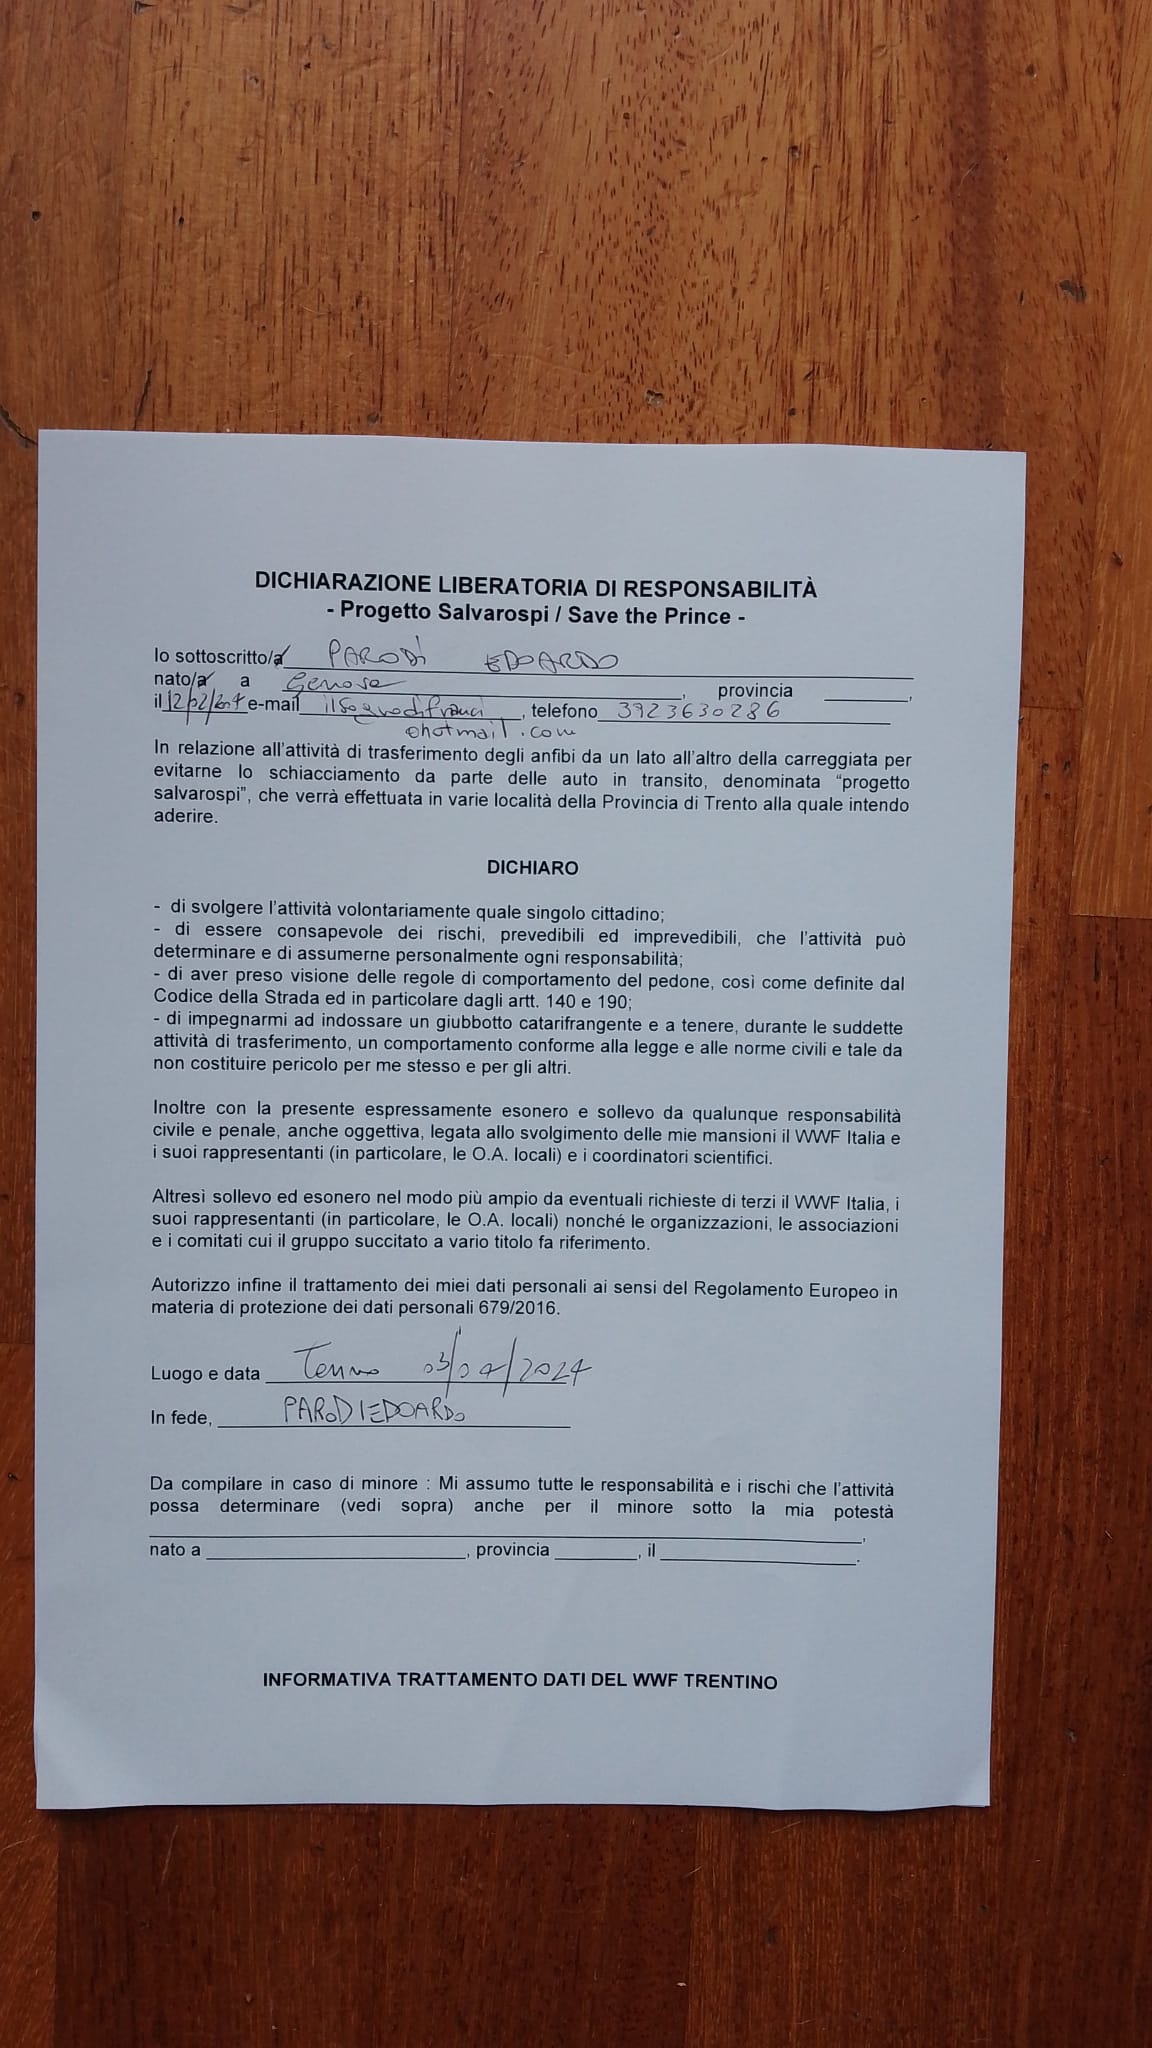 DICHIARAZIONE LIBERATORIA DI RESPONSABILITÀ
- Progetto Salvarospi / Save the Prince -
Io sottoscritto/a PARODI EDOARDO
nato/a a Genova, provincia ,
il e-mail ilsognodifranci, telefono 3923630286
@hotmail.com
In relazione all'attività di trasferimento degli anfibi da un lato all'altro della carreggiata per
evitarne lo schiacciamento da parte delle auto in transito, denominata “progetto
salvarospi”, che verrà effettuata in varie località della Provincia di Trento alla quale intendo
aderire.
DICHIARO
- di svolgere l'attività volontariamente quale singolo cittadino;
- di essere consapevole dei rischi, prevedibili ed imprevedibili, che l'attività può
determinare e di assumerne personalmente ogni responsabilità;
- di aver preso visione delle regole di comportamento del pedone, così come definite dal
Codice della Strada ed in particolare dagli artt. 140 e 190;
- di impegnarmi ad indossare un giubbotto catarifrangente e a tenere, durante le suddette
attività di trasferimento, un comportamento conforme alla legge e alle norme civili e tale da
non costituire pericolo per me stesso e per gli altri.
Inoltre con la presente espressamente esonero e sollevo da qualunque responsabilità
civile e penale, anche oggettiva, legata allo svolgimento delle mie mansioni il WWF Italia e
i suoi rappresentanti (in particolare, le O.A. locali) e i coordinatori scientifici.
Altresì sollevo ed esonero nel modo più ampio da eventuali richieste di terzi il WWF Italia, i
suoi rappresentanti (in particolare, le O.A. locali) nonché le organizzazioni, le associazioni
e i comitati cui il gruppo succitato a vario titolo fa riferimento.
Autorizzo infine il trattamento dei miei dati personali ai sensi del Regolamento Europeo in
materia di protezione dei dati personali 679/2016.
Luogo e data Tenno 03/04/2024
In fede, PARODI EDOARDO
Da compilare in caso di minore : Mi assumo tutte le responsabilità e i rischi che l'attività
possa determinare (vedi sopra) anche per il minore sotto la mia potestà
,
nato a , provincia , il .
INFORMATIVA TRATTAMENTO DATI DEL WWF TRENTINO